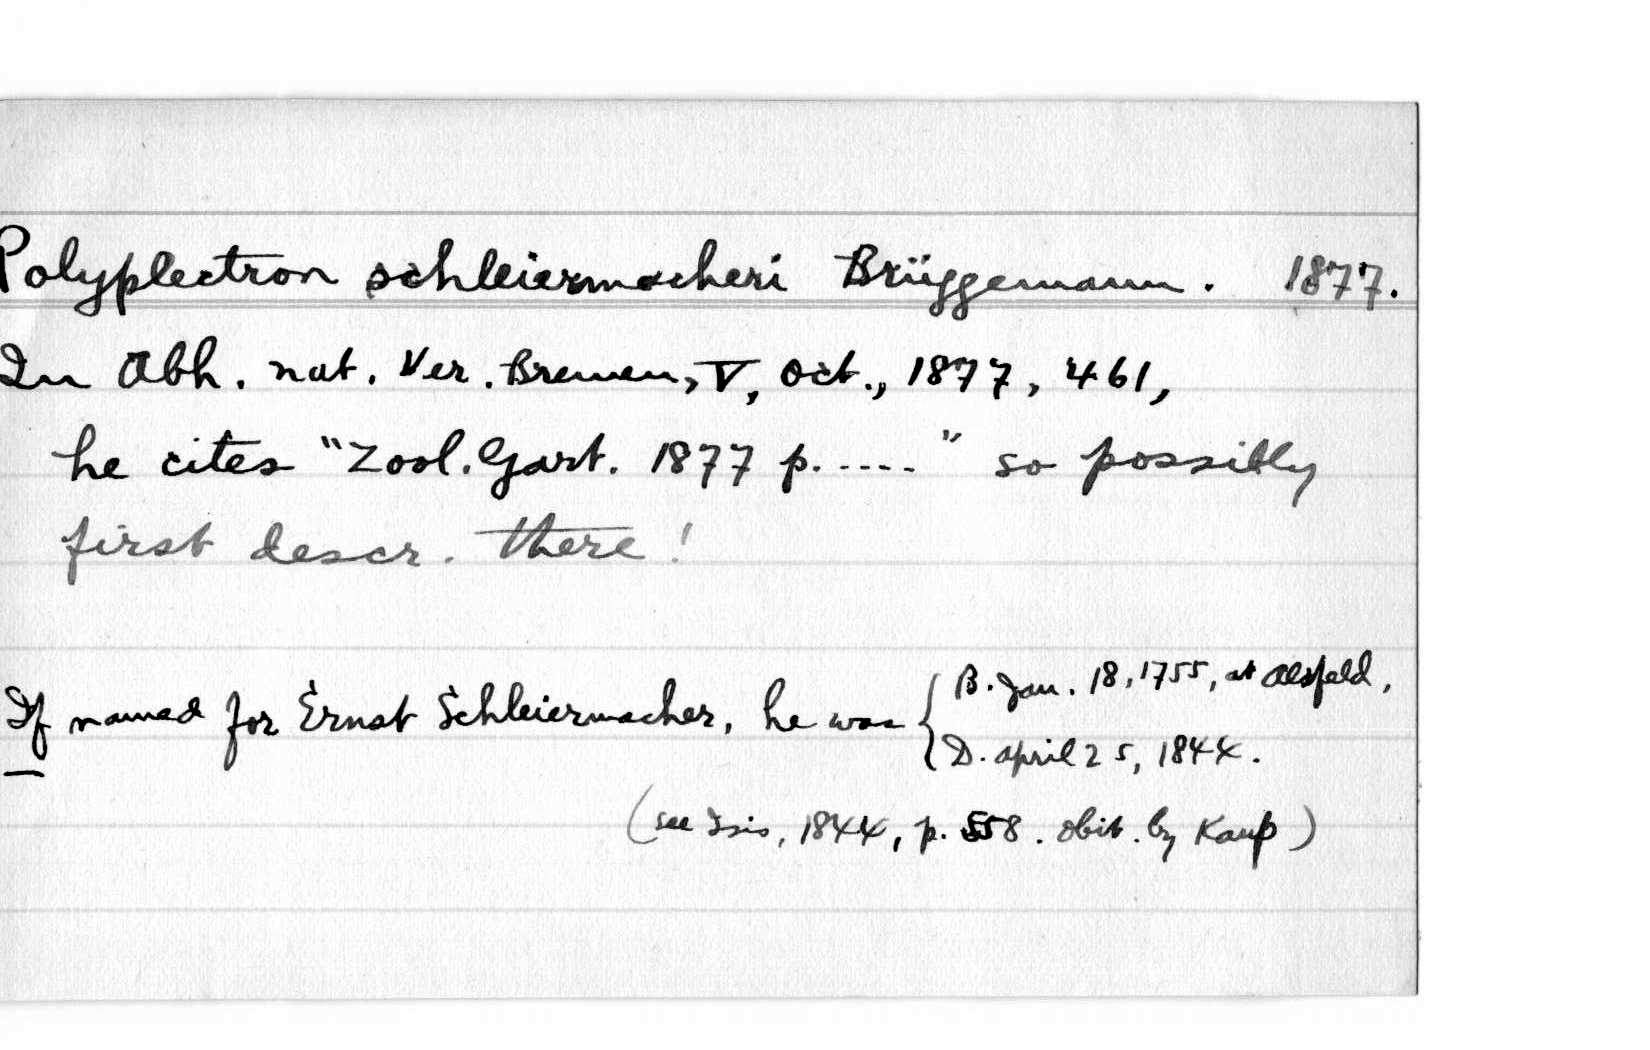 Polyplectron schleiermacheri Brüggemann. 1877.
In Abh. nat. Ver. Bremen, V, Oct., 1877, 461,
he cites "Zool. Gart. 1877 p. ----- " so possibly
first descr. there!
If named for Ernst Schleiermacher, he was { B. Jan. 18, 1755, at Alsfeld,
D. April 25, 1844.
(see Isis, 1844, p. 558. Obit. by Kaup)